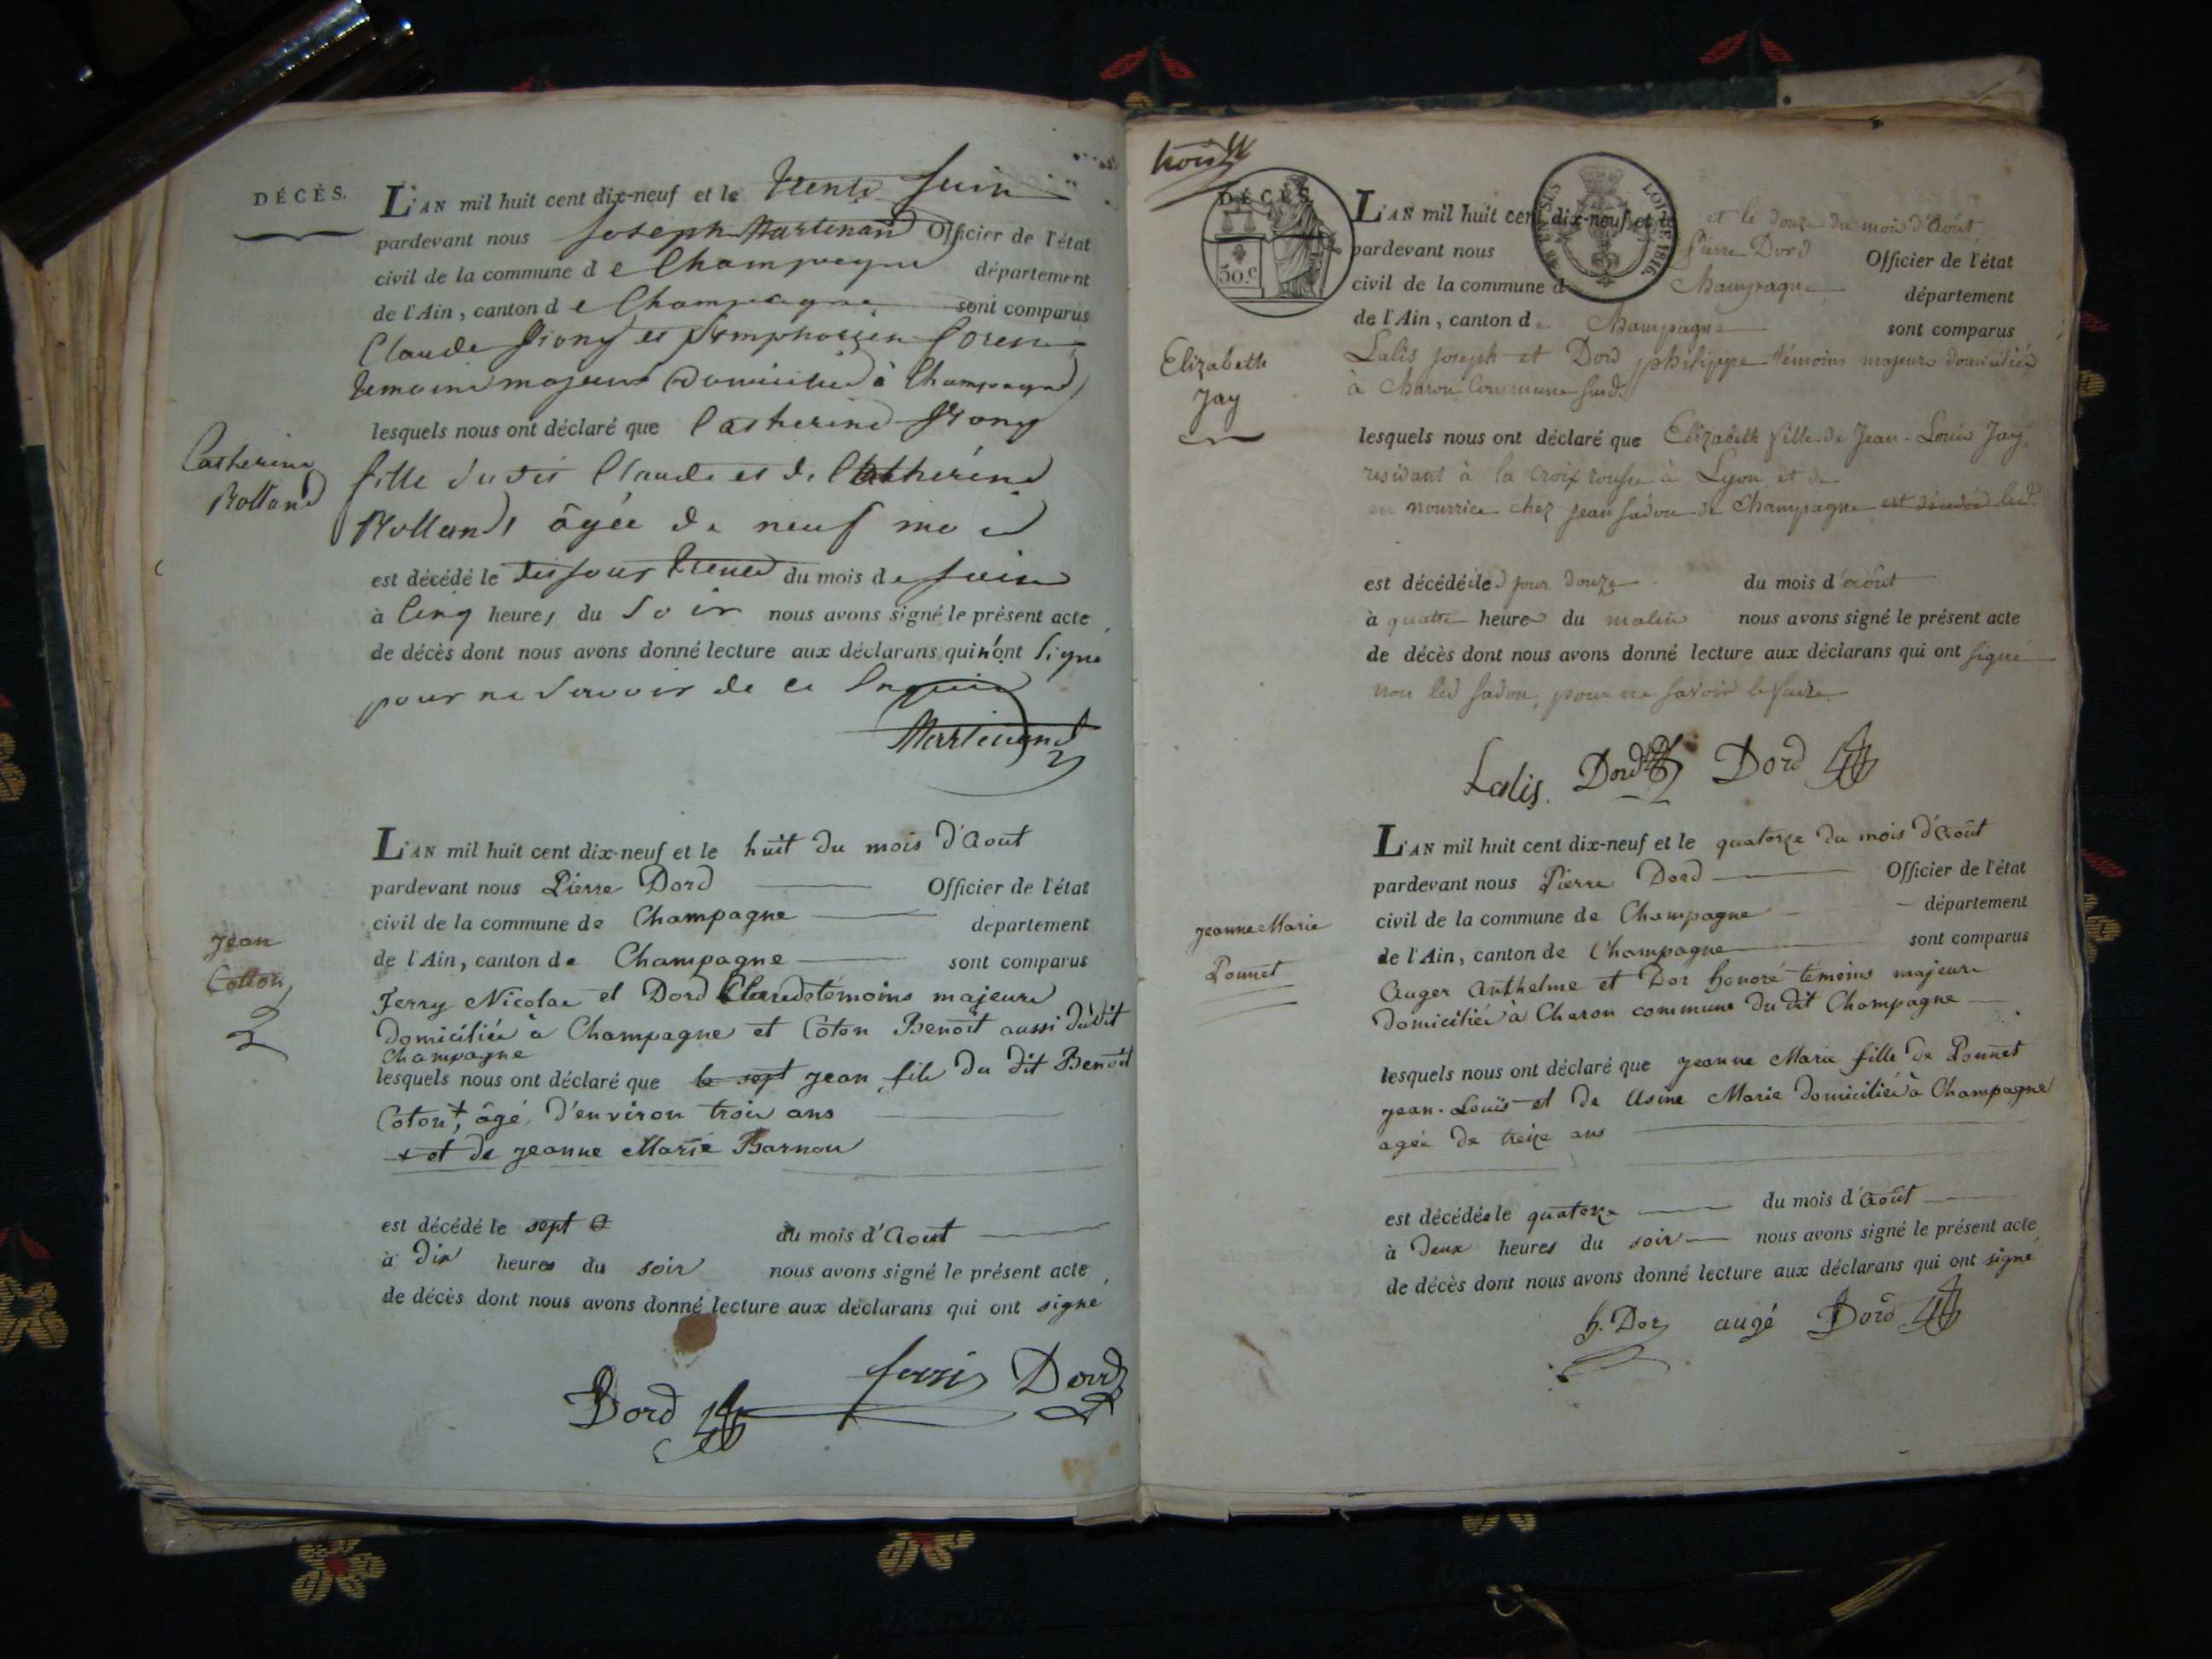 DÉCÈS.
L'AN mil huit cent dix-neuf et le trente Juin
pardevant nous Joseph Martinand Officier de l'état
civil de la commune d e Champagne département
de l'Ain, canton d e Champagne sont comparus
Claude et Symphorien
temoins majeurs Domicilies à Champagne
lesquels nous ont déclaré que Catherine
Catherine
Rolland
fille du dit Claude et de Catherine
Rolland âgée de neuf mois
est décédé le du mois de Juin
à Cinq heures du Soir nous avons signé le présent acte
de décès dont nous avons donné lecture aux déclarans qui n'ont Signé
pour ne Savoir de ce Enquis
Martinand
L'AN mil huit cent dix-neuf et le huit du mois d'Aout
pardevant nous Pierre Dord Officier de l'état
civil de la commune de Champagne département
Jean
Cotton
de l'Ain, canton de Champagne sont comparus
Ferry Nicolas et Dord Claude témoins majeurs
domiciliés à Champagne et Coton Benoît aussi dudit
Champagne
lesquels nous ont déclaré que le sept Jean fils du dit Benoît
Coton +, âgé d'environ trois ans
+ et de jeanne Marie Barnou
est décédé le sept du mois d'Aout
à dix heures du soir nous avons signé le présent acte
de décès dont nous avons donné lecture aux déclarans qui ont signé
Dord Dord
DÉCÈS
50 c.
LOI DE 1816.
L'AN mil huit cent dix-neuf et le et le douze du mois d'Août
pardevant nous Pierre Dord Officier de l'état
civil de la commune d Champagne département
de l'Ain, canton de Champagne sont comparus
Elizabeth
Jay
Lalis joseph et Dord philippe témoins majeurs domiciliés
à Charon Commune
lesquels nous ont déclaré que Elizabeth fille de Jean-Louis Jay,
residant à la Croix rousse à Lyon et de
en nourrice chez Jean Sadou de Champagne est décédée led.
est décédée led jour douze du mois d'août
à quatre heures du matin nous avons signé le présent acte
de décès dont nous avons donné lecture aux déclarans qui ont signé
non led Sadou, pour ne savoir le faire
Lalis. Dord Dord
L'AN mil huit cent dix-neuf et le quatorze du mois d'Août
pardevant nous Pierre Dord Officier de l'état
civil de la commune de Champagne département
de l'Ain, canton de Champagne sont comparus
jeanne Marie
Ponnet
Auger Anthelme et Dor honoré témoins majeurs
domiciliés à Charon commune du dit Champagne
lesquels nous ont déclaré que jeanne Marie fille de Ponnet
jean-Louis et de Usine Marie domiciliés à Champagne
agée de treize ans
est décédée le quatorze du mois d'Août
à deux heures du soir nous avons signé le présent acte
de décès dont nous avons donné lecture aux déclarans qui ont signé
h. Dor augé Dord